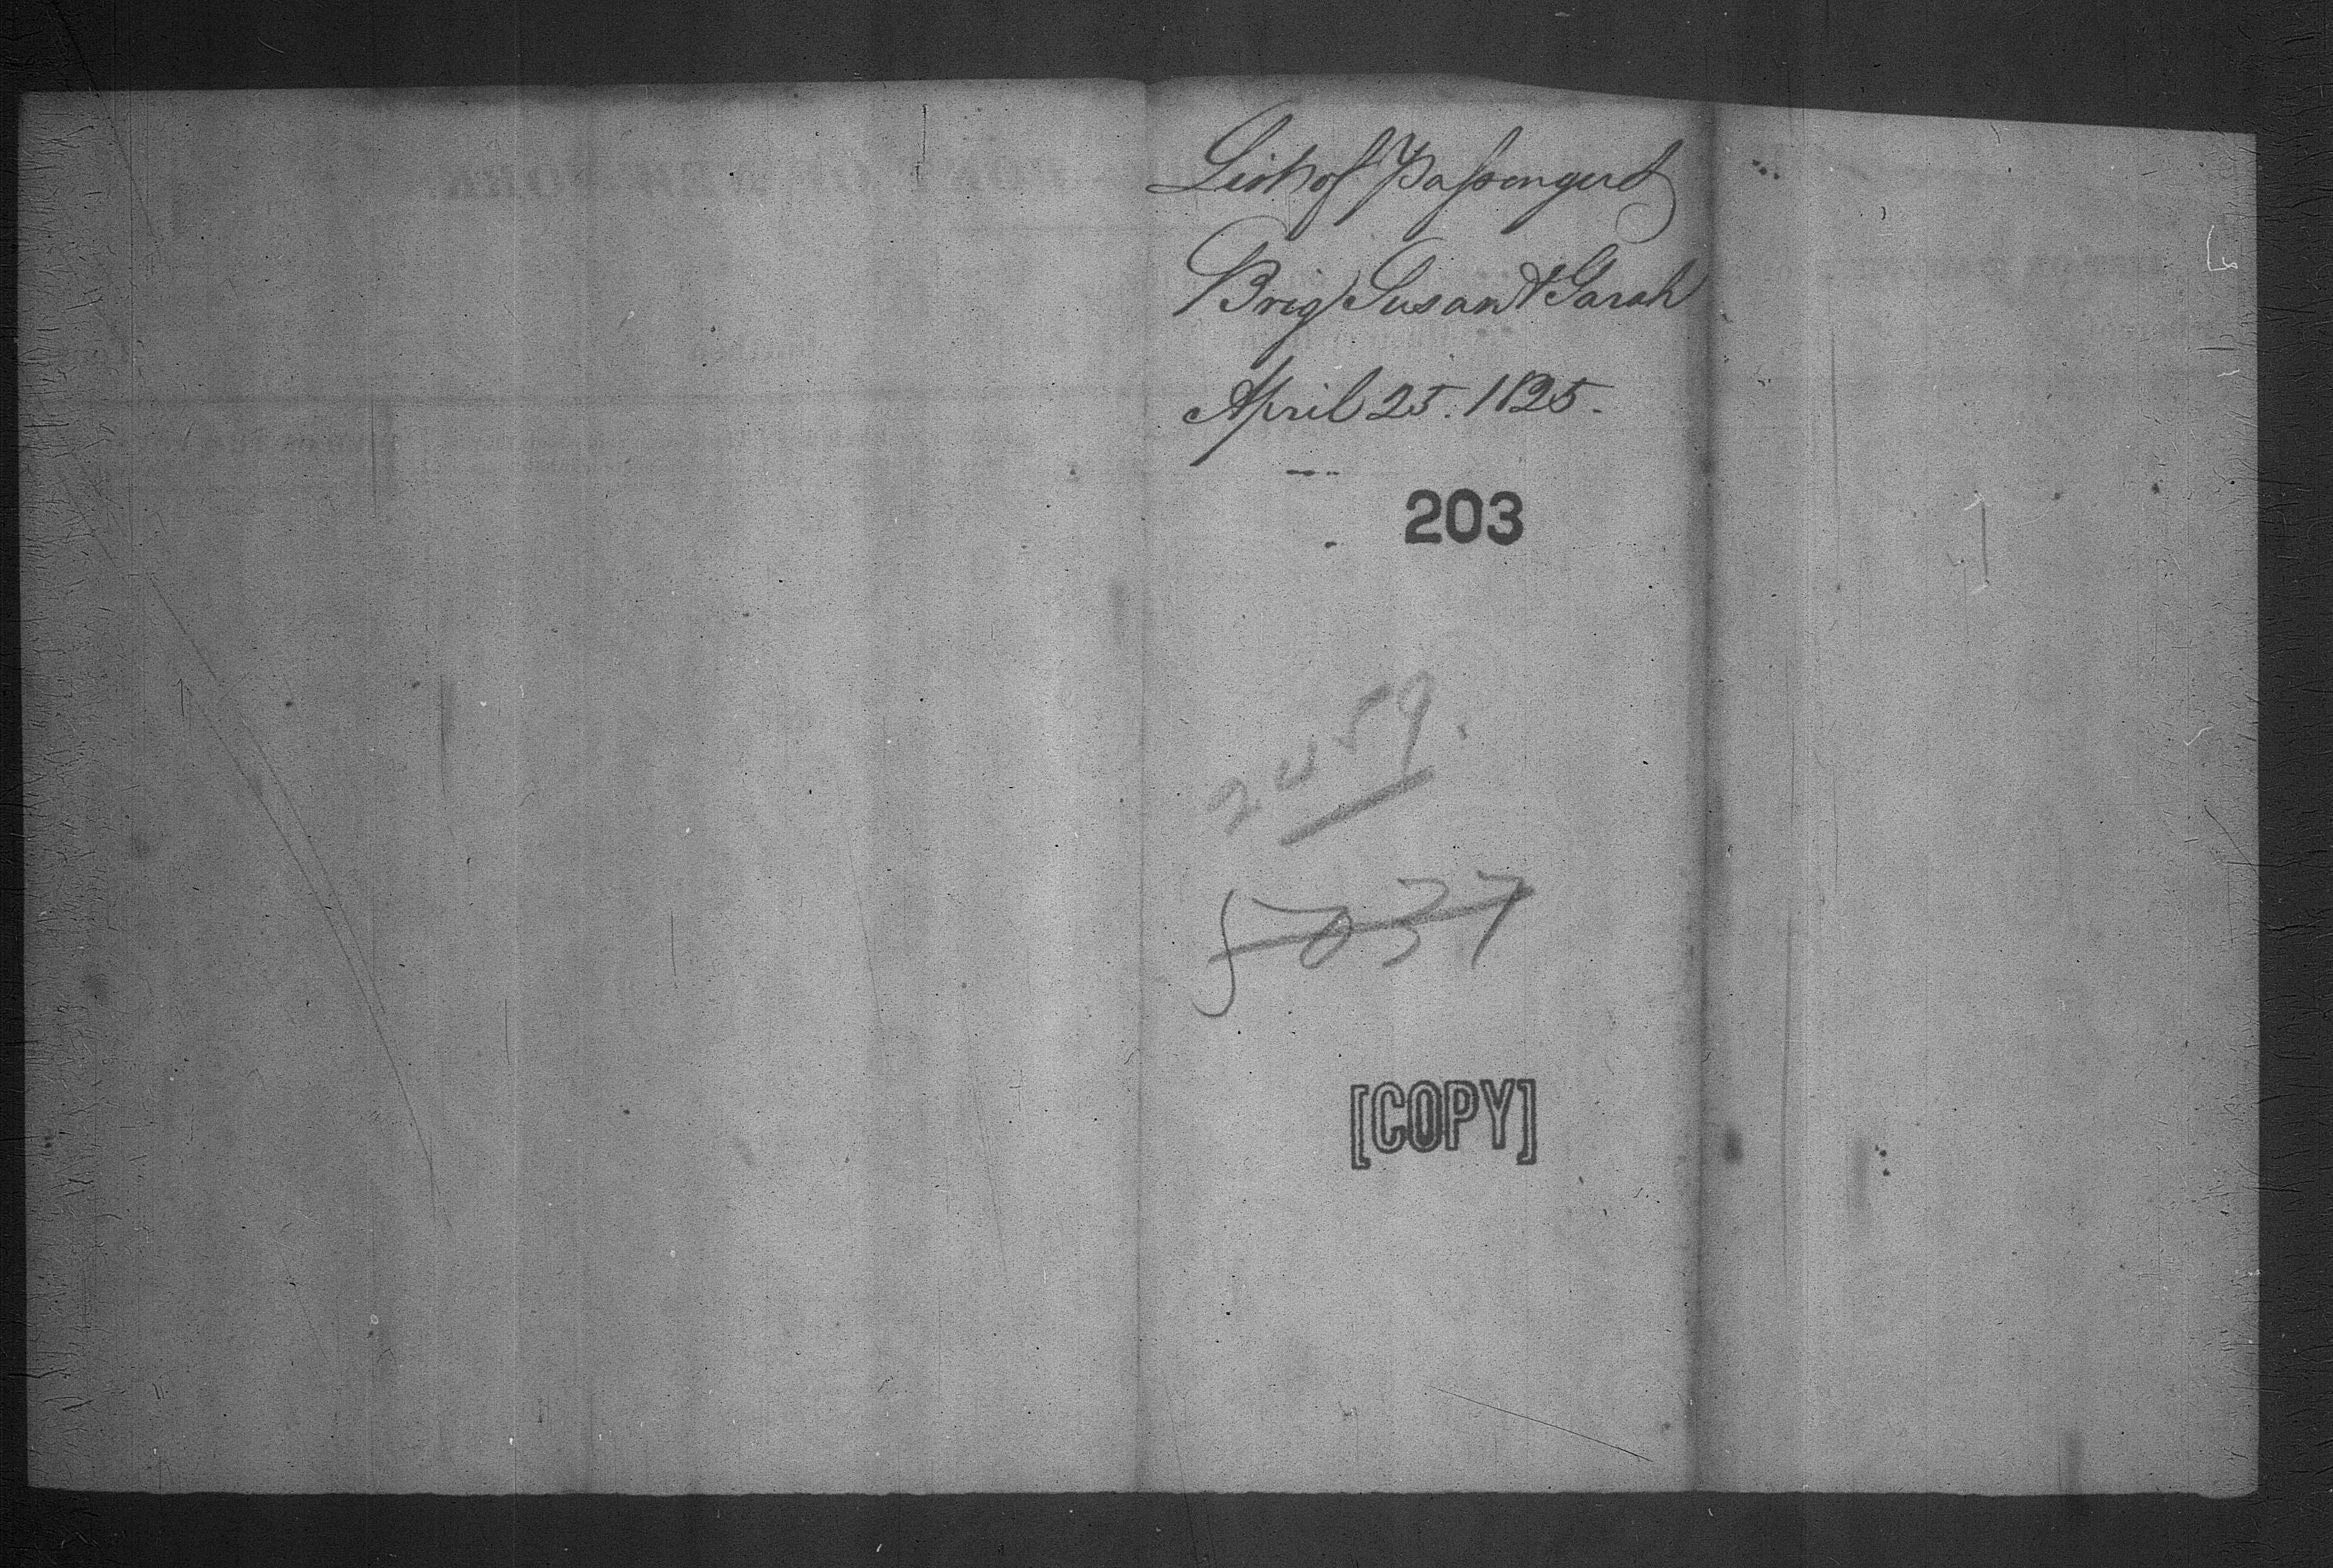 List of Passengers
Brig Susan & Sarah
April 25. 1825.
203
5037
[COPY]